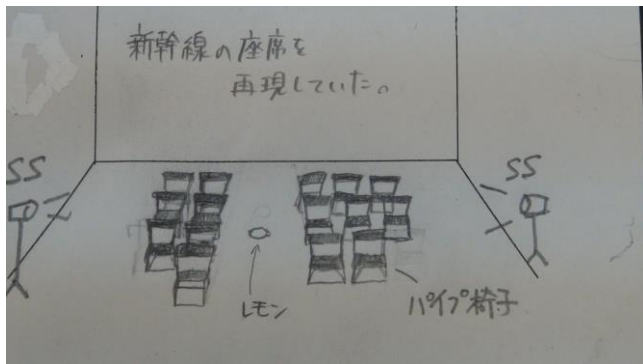 新幹線の座席を
再現していた。
SS
SS
レモン
パイプ椅子